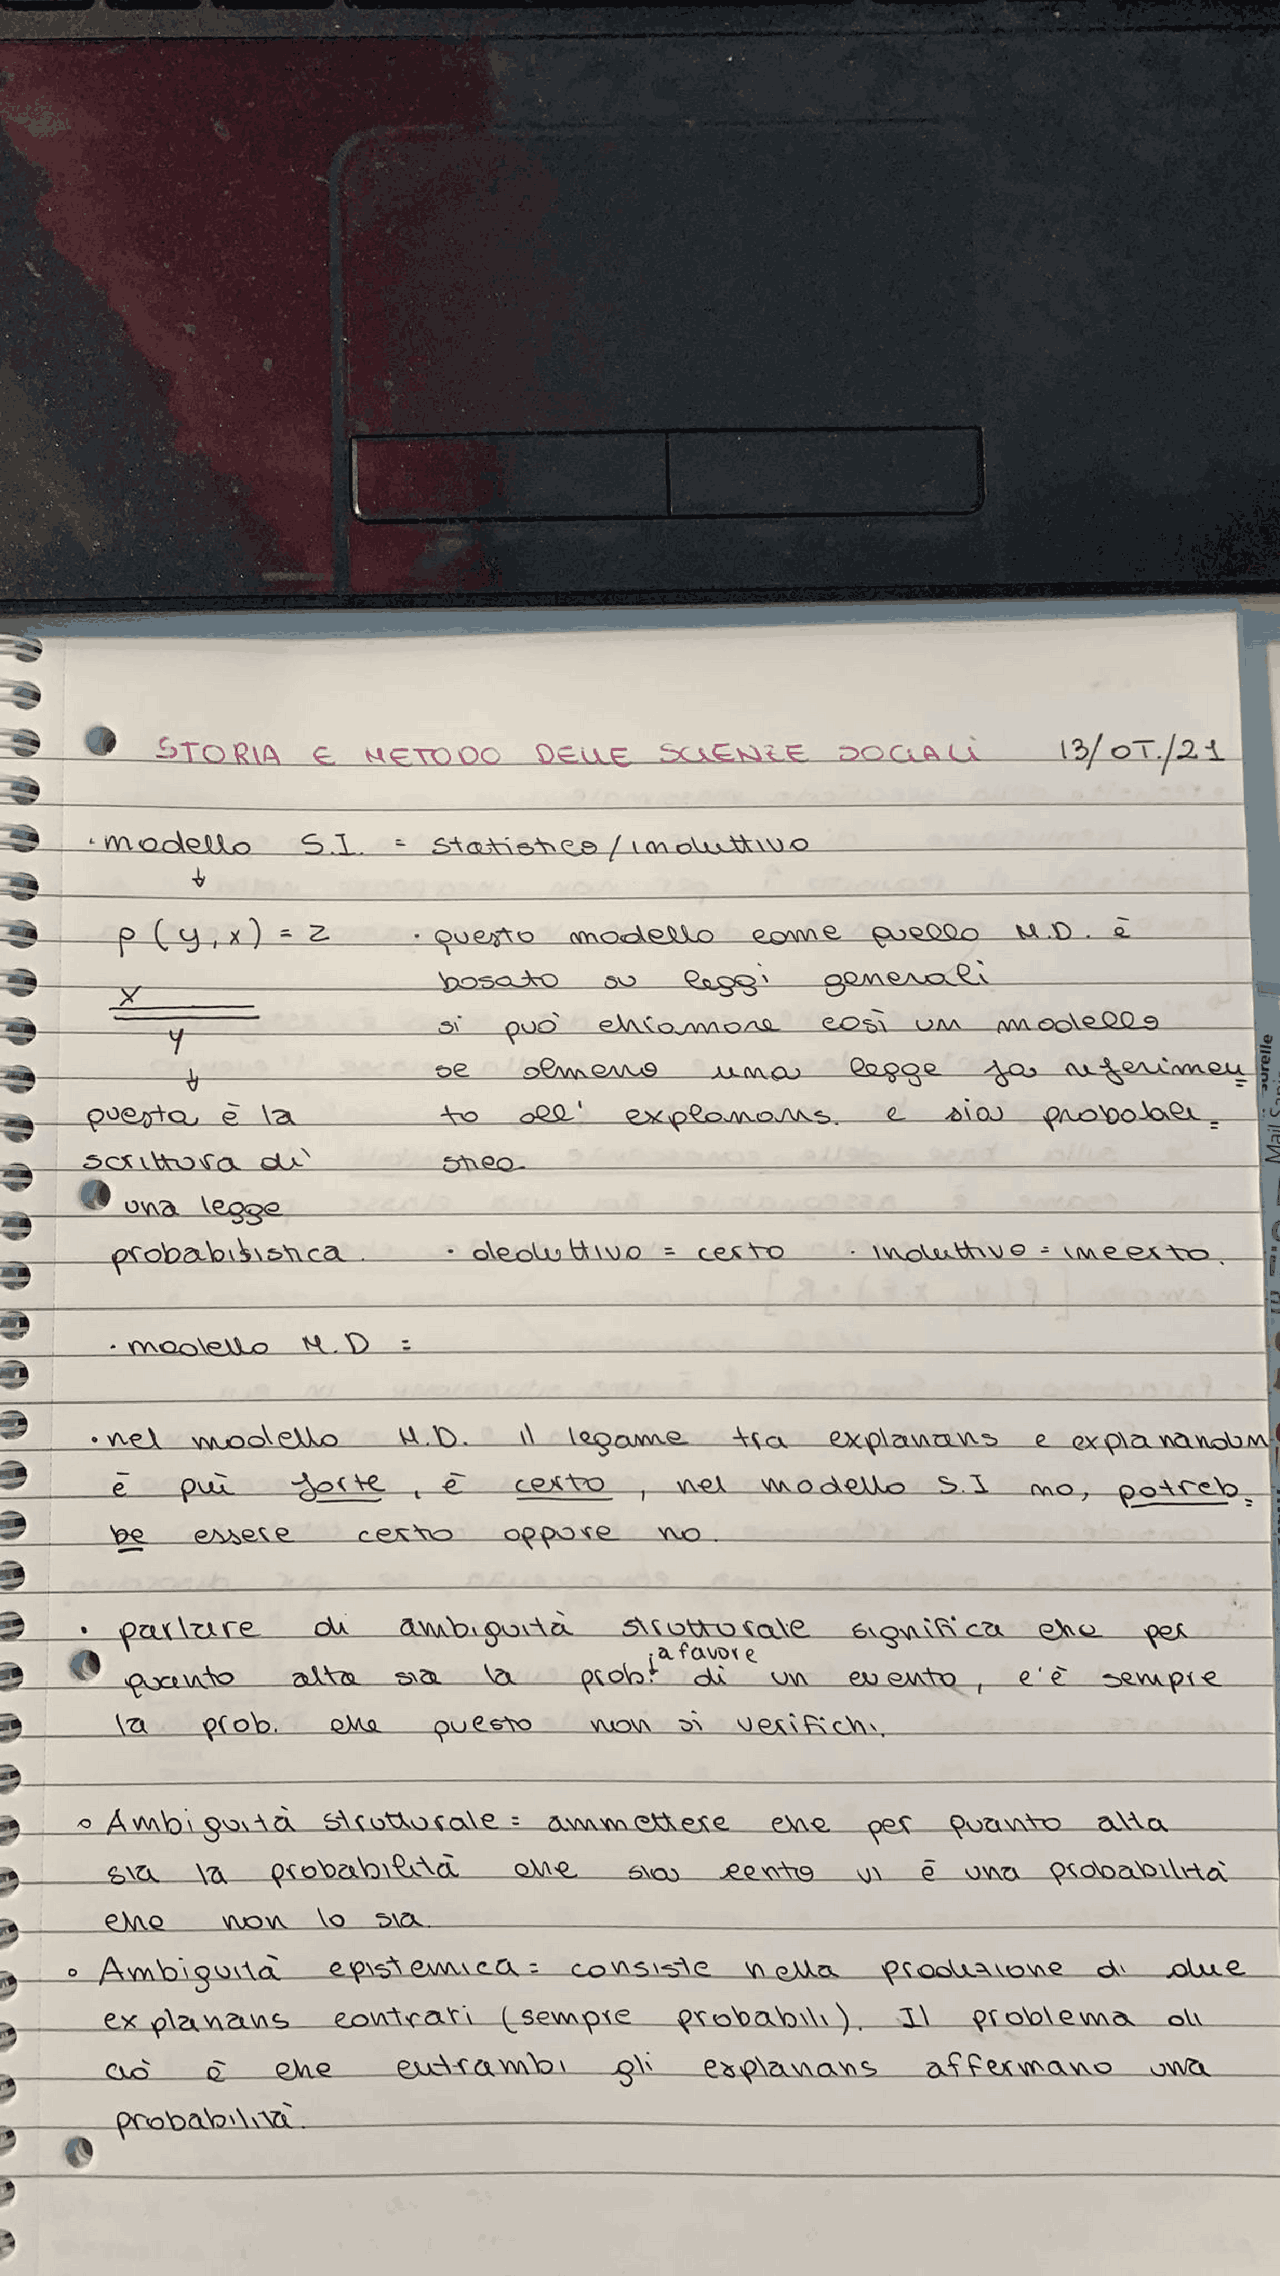 STORIA E METODO DELLE SCIENZE SOCIALI 13/OT./21
· modello S.I. = statistico/induttivo
↓
p (y, x) = z
x
y
↓
questa è la
scrittura di
una legge
probabilistica.
· questo modello come quello N.D. è
basato su leggi generali
si può chiamare così un modello
se almeno una legge fa riferimen=
to all' explanans. e sia probabili=
stica
· deduttivo = certo · induttivo = incerto.
· modello N.D =
· nel modello N.D. il legame tra explanans e explanandum
è più forte, è certo, nel modello S.I no, potreb=
be essere certo oppure no.
· parlare di ambiguità strutturale significa che per
quanto alta sia la prob. a favore di un evento, c'è sempre
la prob. che questo non si verifichi.
° Ambiguità strutturale = ammettere che per quanto alta
sia la probabilità che sia certo vi è una probabilità
che non lo sia.
° Ambiguità epistemica = consiste nella produzione di due
explanans contrari (sempre probabili). Il problema di
ciò è che entrambi gli explanans affermano una
probabilità.